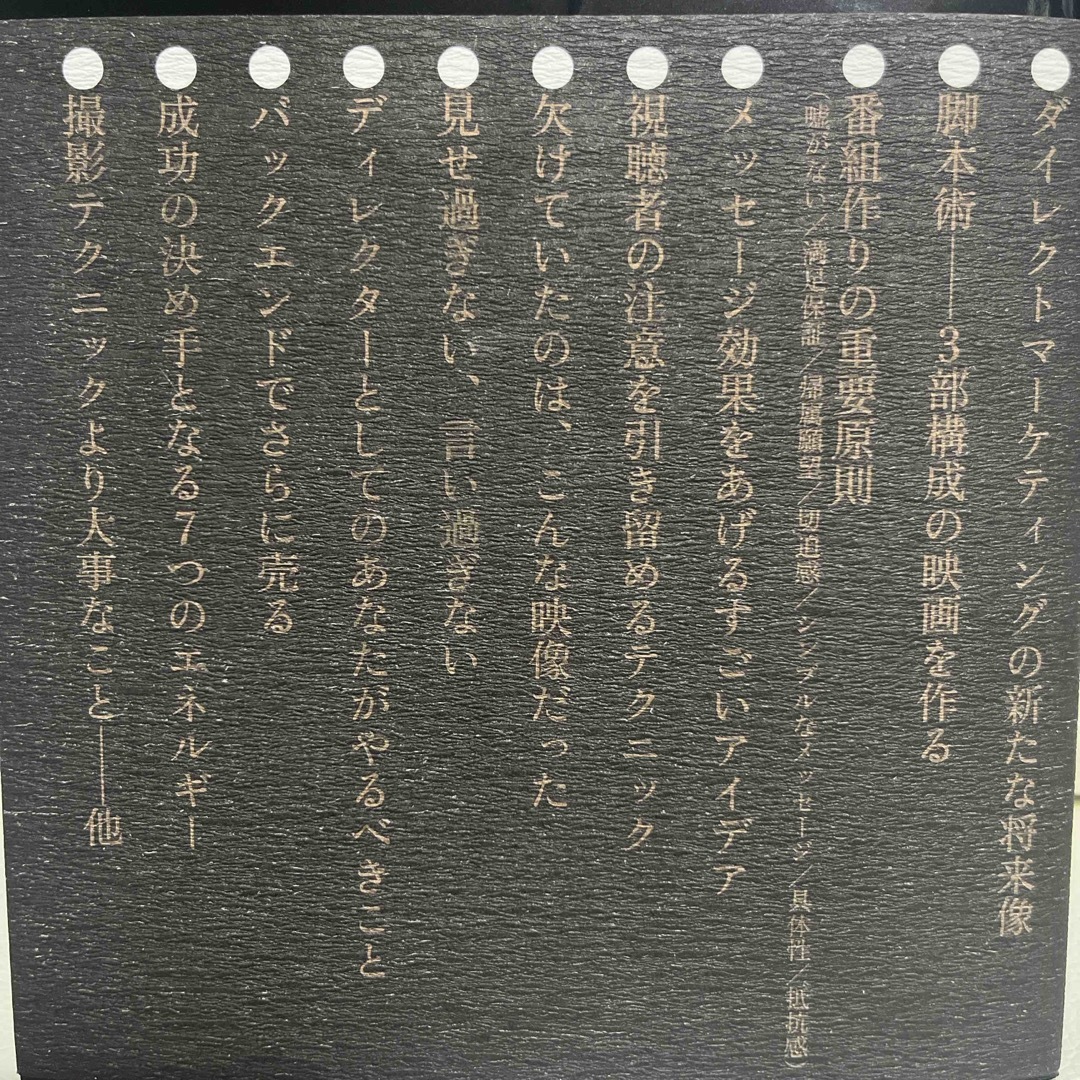 ダイレクトマーケティングの新たな将来像
脚本術――3部構成の映画を作る
番組作りの重要原則
(嘘がない/満足保証/帰属願望/切迫感/シンプルなメッセージ/具体性/抵抗感)
メッセージ効果をあげるすごいアイデア
視聴者の注意を引き留めるテクニック
欠けていたのは、こんな映像だった
見せ過ぎない、言い過ぎない
ディレクターとしてのあなたがやるべきこと
バックエンドでさらに売る
成功の決め手となる7つのエネルギー
撮影テクニックより大事なこと――他